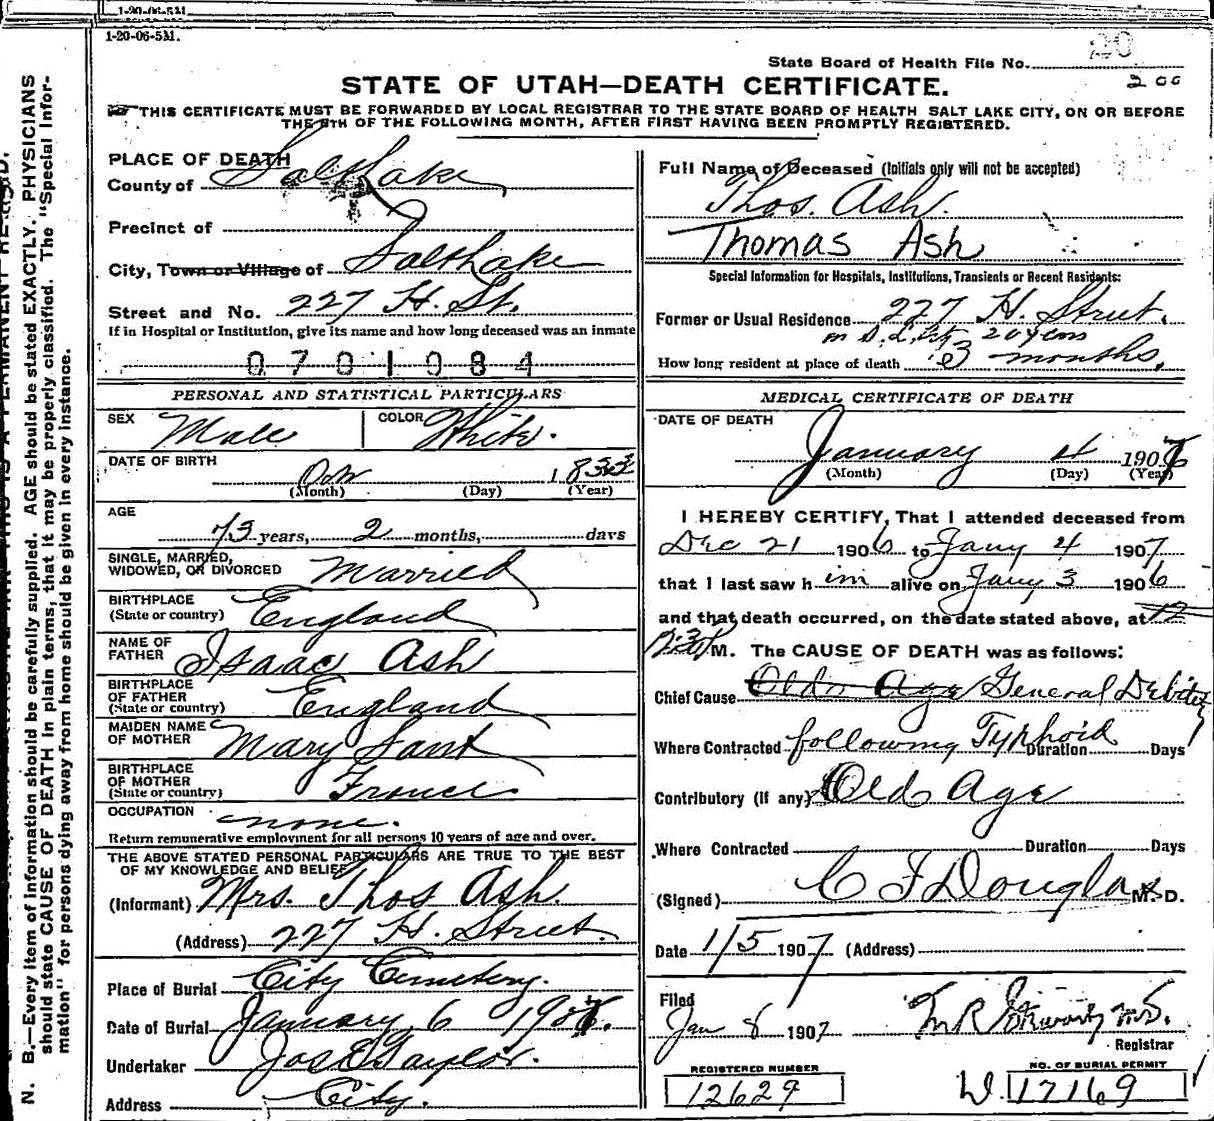 1-20-06-5M.
1-20-06-5M.
State Board of Health File No. 20
200
STATE OF UTAH—DEATH CERTIFICATE.
THIS CERTIFICATE MUST BE FORWARDED BY LOCAL REGISTRAR TO THE STATE BOARD OF HEALTH SALT LAKE CITY, ON OR BEFORE
THE 5TH OF THE FOLLOWING MONTH, AFTER FIRST HAVING BEEN PROMPTLY REGISTERED.
N. B.—Every item of information should be carefully supplied. AGE should be stated EXACTLY. PHYSICIANS
should state CAUSE OF DEATH in plain terms, that it may be properly classified. The "Special Infor-
mation" for persons dying away from home should be given in every instance.
PLACE OF DEATH
County of Salt Lake
Precinct of
City, Town or Village of Salt Lake
Street and No. 227 H. St.
If in Hospital or Institution, give its name and how long deceased was an inmate
0701084
PERSONAL AND STATISTICAL PARTICULARS
SEX Male COLOR White.
DATE OF BIRTH
1833
(Month) (Day) (Year)
AGE
73 years, 2 months, days
SINGLE, MARRIED,
WIDOWED, OR DIVORCED Married
BIRTHPLACE
(State or country) England
NAME OF
FATHER Isaac Ash
BIRTHPLACE
OF FATHER
(State or country) England
MAIDEN NAME
OF MOTHER Mary Sant
BIRTHPLACE
OF MOTHER
(State or country) France
OCCUPATION none.
Return remunerative employment for all persons 10 years of age and over.
THE ABOVE STATED PERSONAL PARTICULARS ARE TRUE TO THE BEST
OF MY KNOWLEDGE AND BELIEF
(Informant) Mrs. Thos Ash.
(Address) 227 H. Street.
Place of Burial City Cemetery.
Date of Burial January 6 1907.
Undertaker Jos E Taylor.
Address City.
Full Name of Deceased (Initials only will not be accepted)
Thos. Ash.
Thomas Ash
Special Information for Hospitals, Institutions, Transients or Recent Residents:
Former or Usual Residence 227 H. Street.
in S. L. City 20 years
How long resident at place of death 3 months.
MEDICAL CERTIFICATE OF DEATH
DATE OF DEATH
January 4 1907
(Month) (Day) (Year)
I HEREBY CERTIFY, That I attended deceased from
Dec 21 1906 to Jany 4 1907
that I last saw him alive on Jany 3 1906
and that death occurred, on the date stated above, at 12
M. The CAUSE OF DEATH was as follows:
Chief Cause Old Age General Debility
Where Contracted following Typhoid Duration Days
Contributory (If any) Old Age
Where Contracted Duration Days
(Signed) C F Douglas M. D.
Date 1/5 1907 (Address)
Filed
Jan 8 1907 M.D.
Registrar
REGISTERED NUMBER
12629
NO. OF BURIAL PERMIT
W. 17169